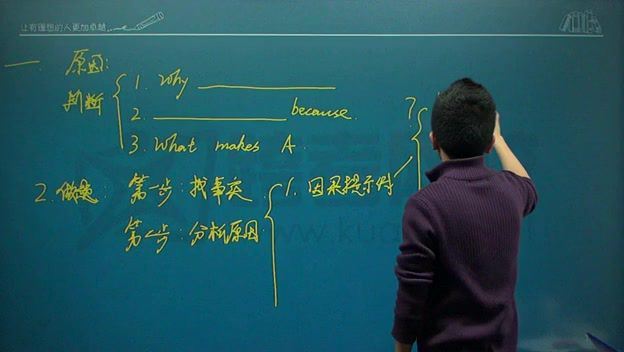 让有理想的人更加卓越
一、原因:
判断
1. Why ____________
2. ____________ because.
3. What makes A.
?
2. 做题: 第一步:找事实
1. 因果提示词
第二步:分析原因